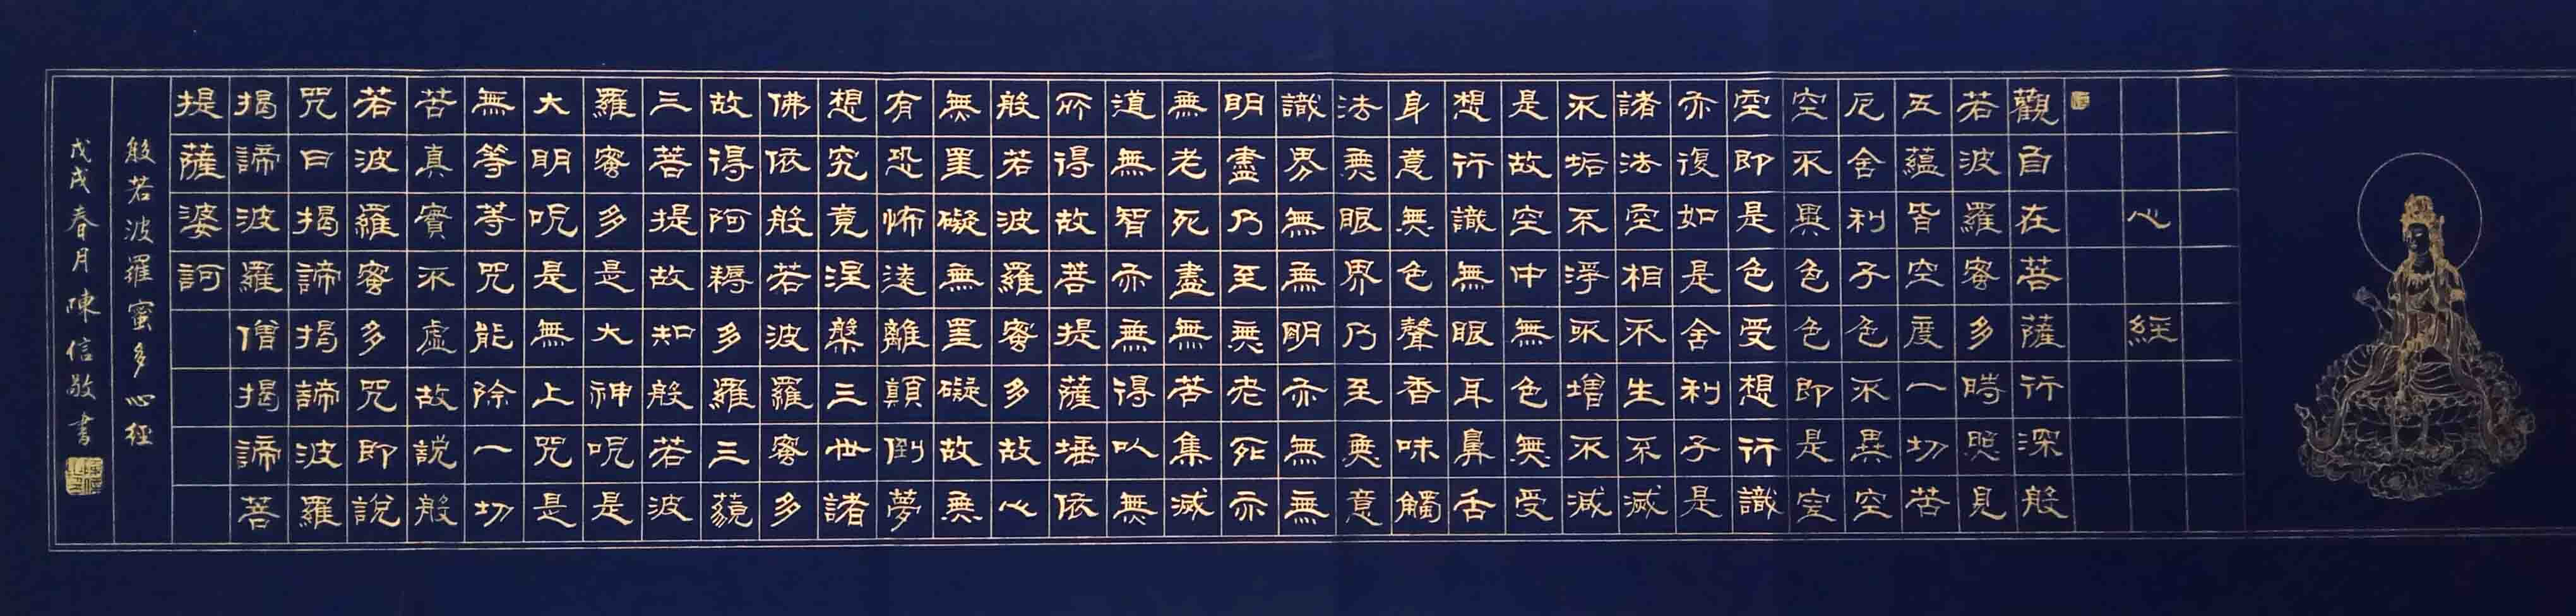 心經
觀自在菩薩行深般
若波羅蜜多時照見
五蘊皆空度一切苦
厄舍利子色不異空
空不異色色即是空
空即是色受想行識
亦復如是舍利子是
諸法空相不生不滅
不垢不淨不增不減
是故空中無色無受
想行識無眼耳鼻舌
身意無色聲香味觸
法無眼界乃至無意
識界無無明亦無無
明盡乃至無老死亦
無老死盡無苦集滅
道無智亦無得以無
所得故菩提薩埵依
般若波羅蜜多故心
無罣礙無罣礙故無
有恐怖遠離顛倒夢
想究竟涅槃三世諸
佛依般若波羅蜜多
故得阿耨多羅三藐
三菩提故知般若波
羅蜜多是大神呪是
大明呪是無上咒是
無等等咒能除一切
苦真實不虛故說般
若波羅蜜多咒即說
咒曰揭諦揭諦波羅
揭諦波羅僧揭諦菩
提薩婆訶
般若波羅蜜多心經
戊戌春月陳信敬書